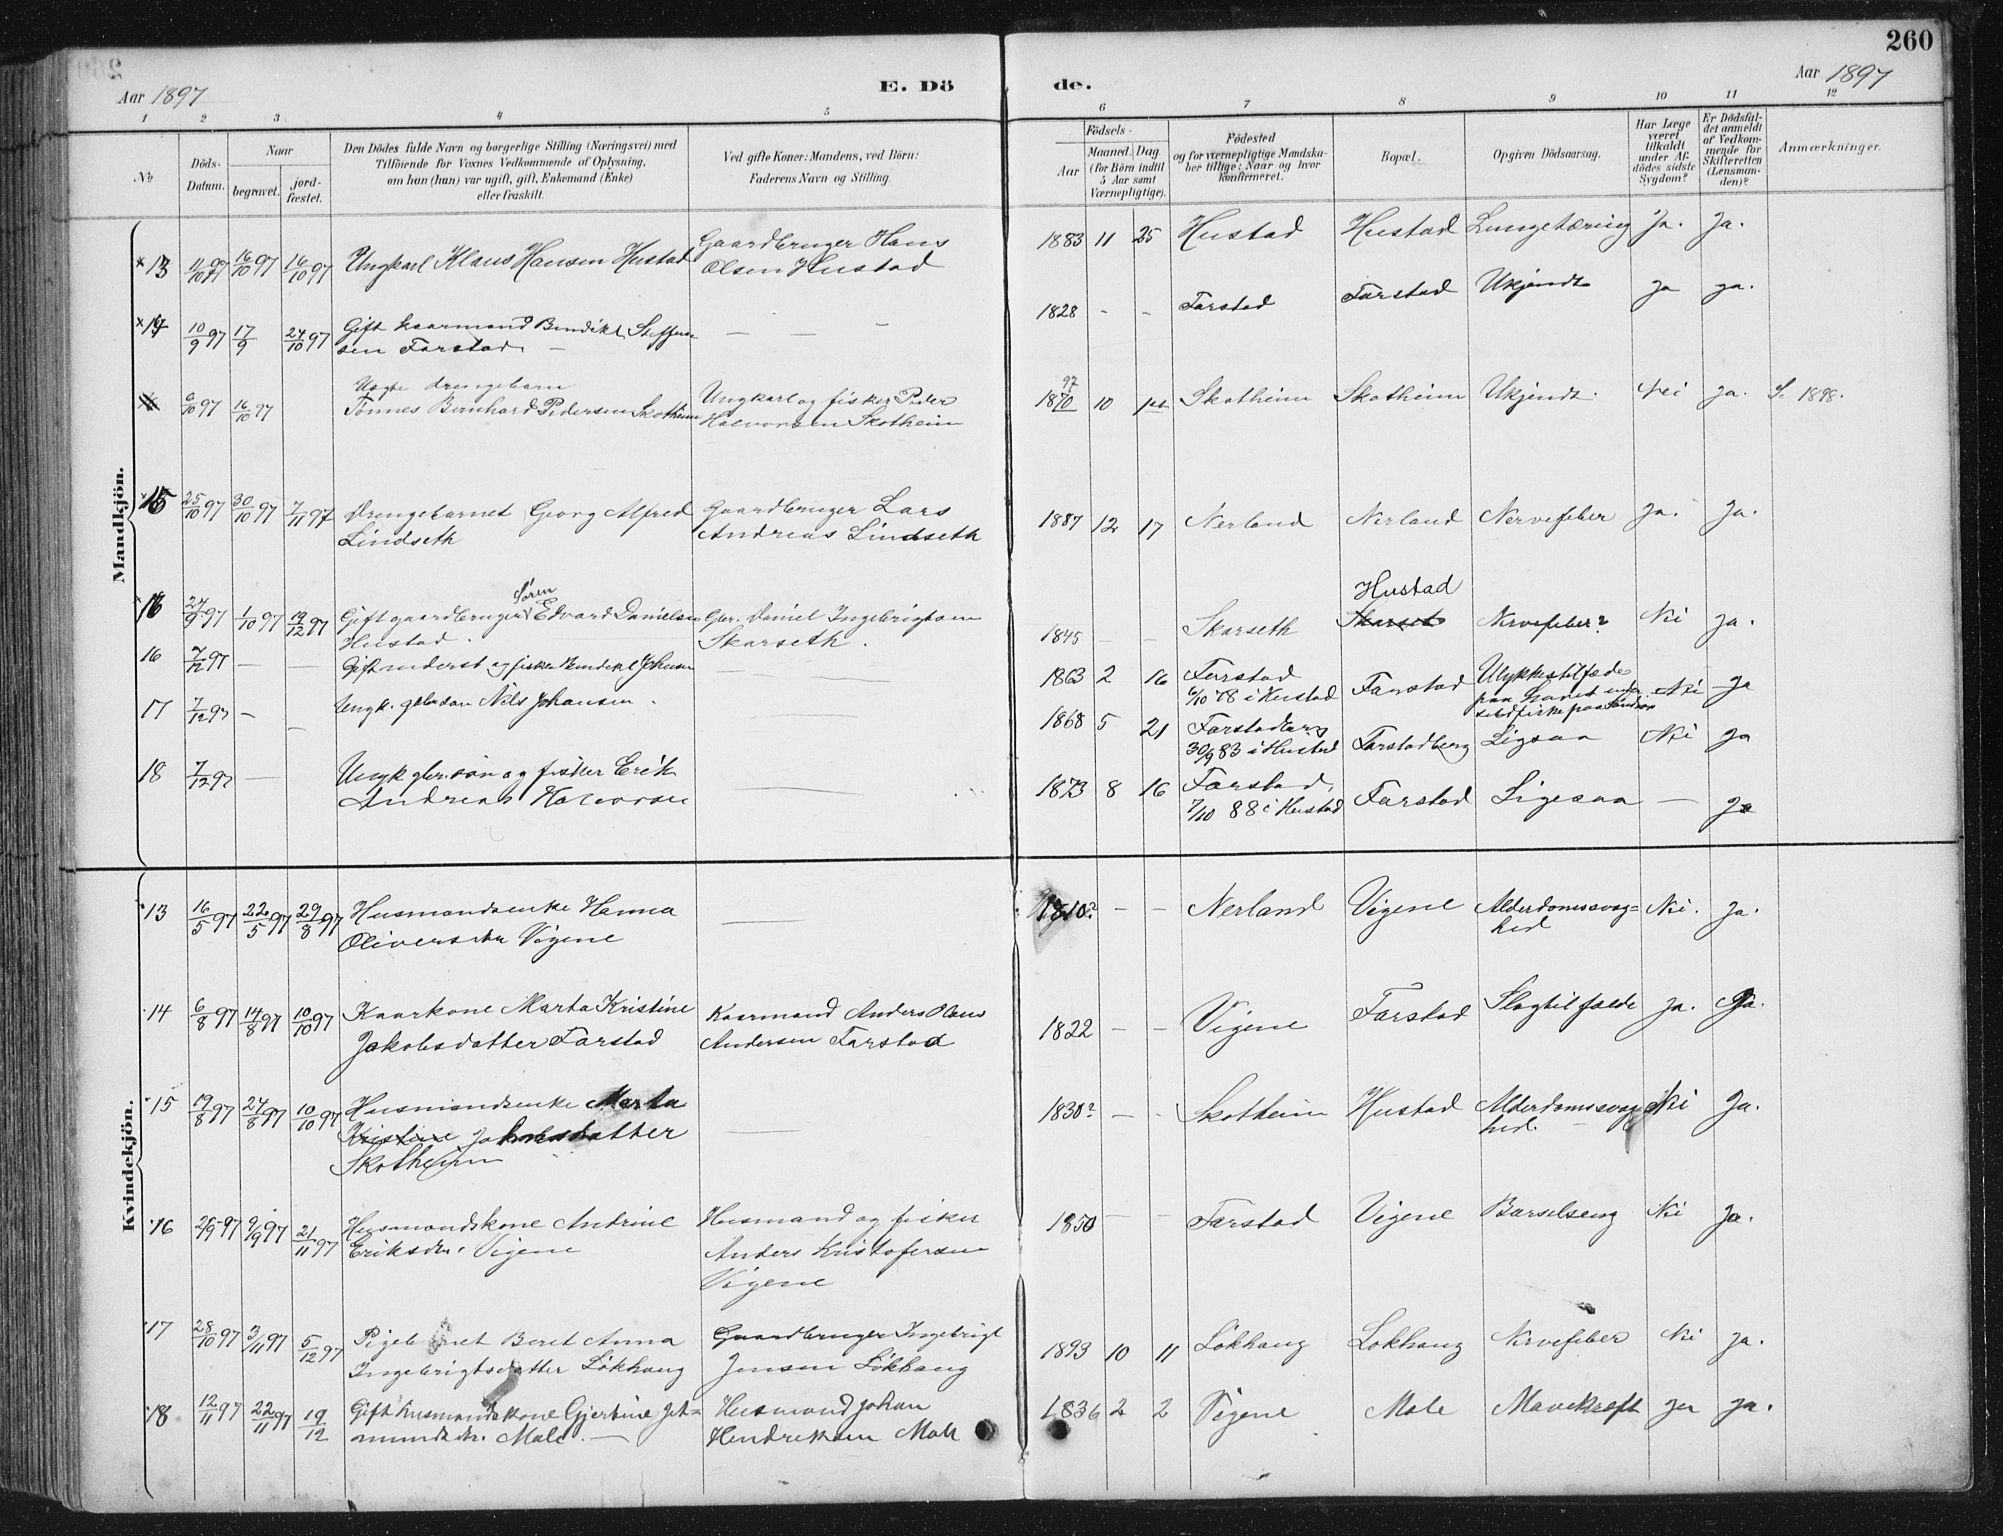 260
Aar 1897
E. Dö
de.
Aar 1897
1 2 3 4 5
6 7 8 9 10 11 12
No
Döds-
Datum.
Naar
begravet.
jord-
fæstet.
Den Dödes fulde Navn og borgerlige Stilling (Næringsvei) med
Tilföiende for Voxnes Vedkommende af Oplysning,
om han (hun) var ugift, gift, Enkemand (Enke)
eller fraskilt.
Ved gifte Koner: Mandens, ved Börn:
Faderens Navn og Stilling.
Födsels-
Aar
Maaned. Dag.
(for Börn indtil
5 Aar samt
Værnepligtige).
Födested
og for værnepligtige Mandska-
ber tillige: Naar og hvor
konfirmeret.
Bopæl.
Opgiven Dödsaarsag.
Har Læge
været
tilkaldt
under Af-
dödes sidste
Sygdom?
Er Dödsfal-
det anmeldt
af Vedkom-
mende for
Skifteretten
(Lensman-
den)?
Anmærkninger.
Mandkjön.
13 11/10 97 16/10 97 16/10 97 Ungkarl Klaus Hansen Hustad
Gaardbruger Hans
Olsen Hustad
1883 11 25 Hustad Hustad Lungetæring Ja. Ja.
14 10/9 97 17/9 24/10 97 Gift kaarmand Bendikt Steffen-
sen Farstad — — — —
1828 - - Farstad Farstad Ukjendt Ja ja.
6/10 97 16/10 97 Uægte drengebarn
Tönnes Bernhard Pedersen Skotheim
Ungkarl og fisker Peder
Halvorsen Skotheim
97
1870 10 1st Skotheim Skotheim Ukjendt. Nei Ja. S. 1898.
15 25/10 97 30/10 97 7/11 97 Drengebarnet Georg Alfred
Lindseth
Gaardbruger Lars
Andreas Lindseth
1887 12 17 Nerland Nerland Nervefeber Ja. Ja.
16 27/9 97 1/10 97 19/12 97 Gift gaardbruger Sören Edvard Danielsen
Hustad.
Gbr. Daniel Ingebrigtsen
Skarseth.
1845 — — Skarseth Hustad
Skarset Nervefeber? Nei Ja.
16 7/12 97 — — Gift inderst og fisker Bendikt Johnsen —
1863 2 16 Farstad
6/10 78 i Hustad Farstad Ulykkestilfælde
paa havet under
sildfiske paa Nei Ja
17 7/12 97 — — Ungk. gbr.sön Nils Johansen. —
1868 5 21 Farstadberg
30/9 83 i Hustad Farstadberg Ligsaa Nei Ja
18 7/12 97 — Ungk gbr. sön og fisker Erik
Andreas Halvorsen —
1873 8 16 Farstad,
7/10 88 i Hustad Farstad Ligesaa — Ja
Kvindekjön.
13 16/5 97 22/5 97 29/8 97 Husmandsenke Hanna
Oliversdtr Vigene —
1810? — — Nerland Vigene Alderdomssvag=
hed Nei. Ja.
14 6/8 97 14/8 97 10/10 97 Kaarkone Marta Kristine
Jakobsdatter Farstad
Kaarmand Anders Hans
Andersen Farstad
1822 — — Vigene Farstad Slagtilfælde Ja. Ja.
15 19/8 97 24/8 97 10/10 97 Husmandsenke Marta
Kristine datter
Skotheim —
1830? — - Skotheim Hustad Alderdomssvag
hed. Nei Ja.
16 2/9 97 9/9 97 21/11 97 Husmandskone Andrine
Eriksdr. Vigene
Husmand og fisker
Anders Kristofersen
Vigene
1850 — — Farstad Vigene Barselseng Nei Ja.
17 28/10 97 3/11 97 5/12 97 Pigebarnet Beret Anna
Ingebrigtsdatter Lökhaug
Gaardbruger Ingebrigt
Jensen Lökhaug
1893 10 11 Lökhaug Lökhaug Nervefeber Nei Ja.
18 12/11 97 22/11 97 19/12 Gift husmandskone Gjertine Jet=
mundsdr. Male. —
Husmand Johan
Hendriksen Male
1836 2 2 Vigene Male Mavekræft Ja Ja.